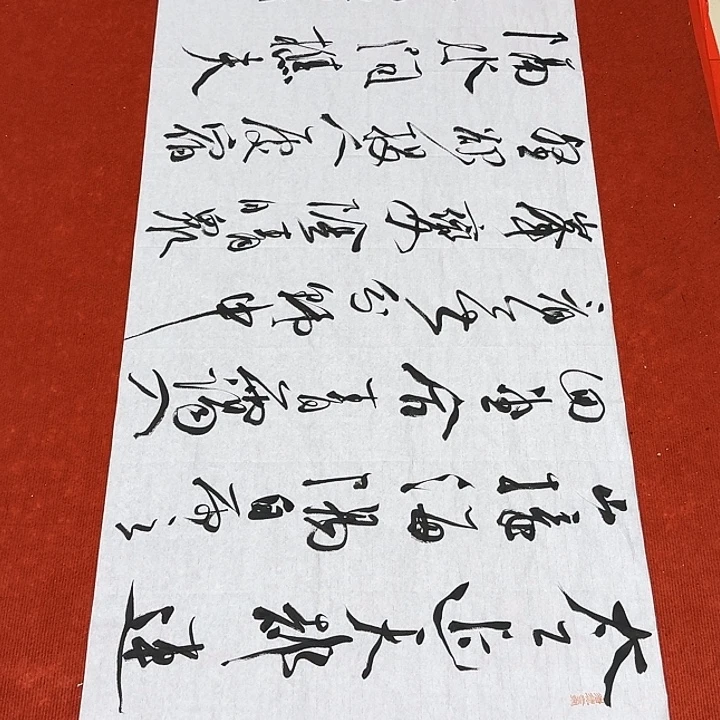 太乙近天都連
山接海隅白雲
回望合青靄入
看無分野中
峯變陰晴眾
壑殊欲投人處宿
隔水問樵夫